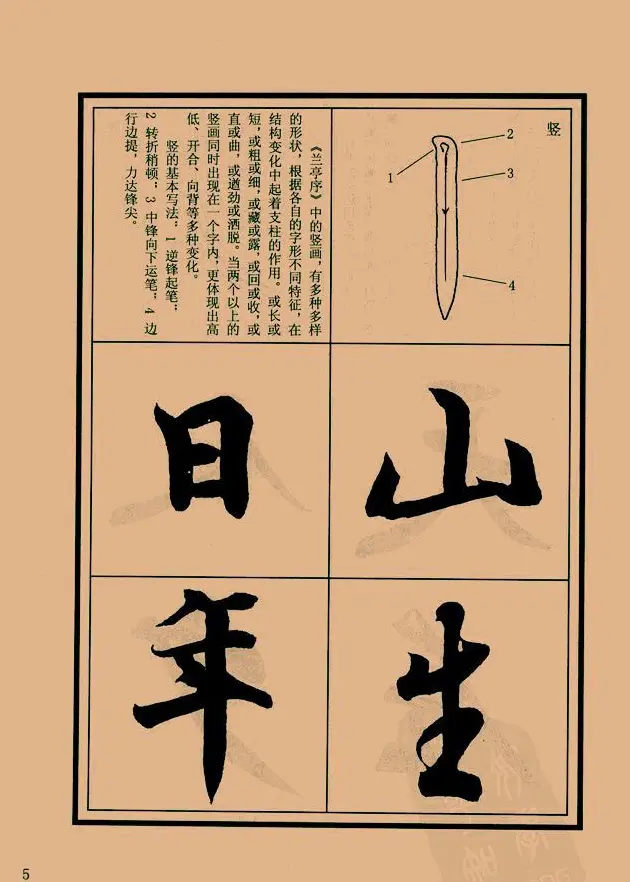 竖
1
2
3
4
《兰亭序》中的竖画，有多种多样
的形状，根据各自的字形不同特征，在
结构变化中起着支柱的作用。或长或
短，或粗或细，或藏或露，或回或收，或
直或曲，或遒劲或洒脱。当两个以上的
竖画同时出现在一个字内，更体现出高
低、开合、向背等多种变化。
竖的基本写法：1 逆锋起笔；
2 转折稍顿；3 中锋向下运笔；4 边
行边提，力达锋尖。
山
日
生
年
5